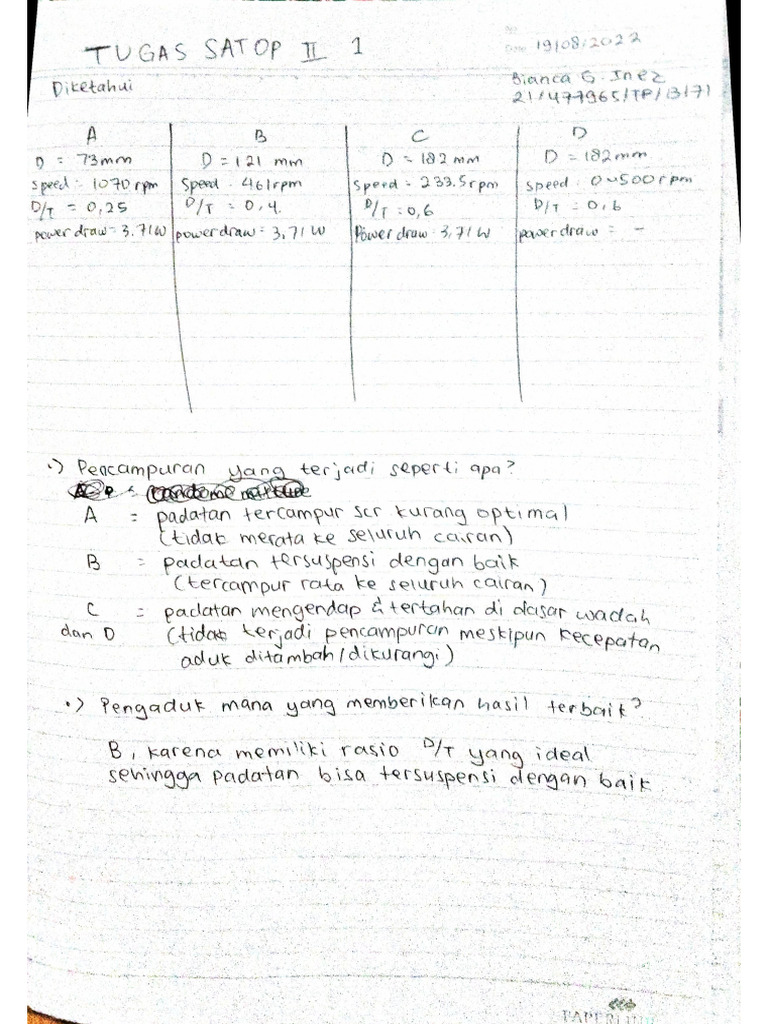 TUGAS SATOP II 1
No
Date 19/08/2022
Bianca G. Inez
21/477965/TP/13171
Diketahui
A B C D
D = 73mm D = 121 mm D = 182 mm D = 182mm
Speed = 1070 rpm Speed = 461rpm Speed = 233.5rpm Speed = 0~500rpm
D/T = 0,25 D/T = 0,4 D/T = 0,6 D/T = 0,6
power draw = 3.71W power draw = 3,71 W Power draw = 3,71W power draw = -
•) Pencampuran yang terjadi seperti apa?
A = padatan tercampur scr kurang optimal
(tidak merata ke seluruh cairan)
B = padatan tersuspensi dengan baik
(tercampur rata ke seluruh cairan)
C = padatan mengendap & tertahan di dasar wadah
dan D (tidak terjadi pencampuran meskipun kecepatan
aduk ditambah/dikurangi)
•) Pengaduk mana yang memberikan hasil terbaik?
B, karena memiliki rasio D/T yang ideal
sehingga padatan bisa tersuspensi dengan baik